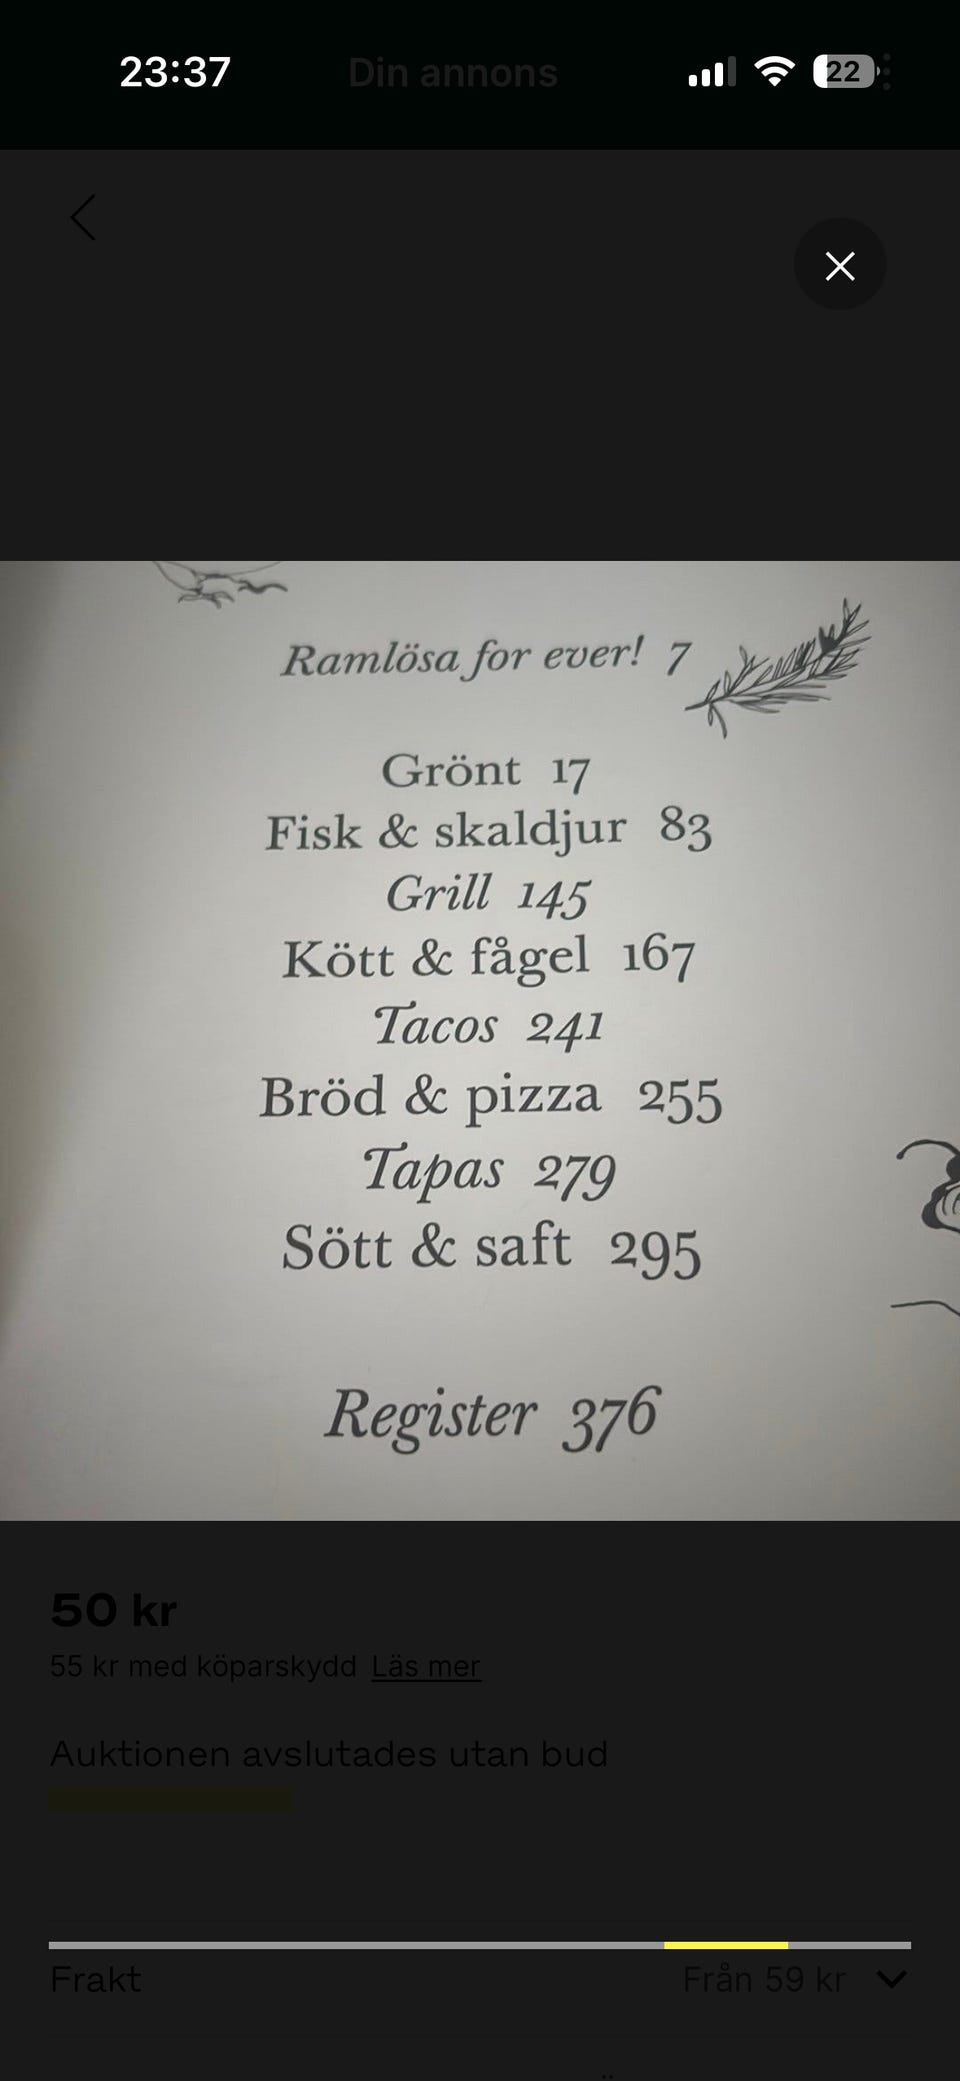 23:37
Din annons
22
Ramlösa for ever! 7
Grönt 17
Fisk & skaldjur 83
Grill 145
Kött & fågel 167
Tacos 241
Bröd & pizza 255
Tapas 279
Sött & saft 295
Register 376
50 kr
55 kr med köparskydd Läs mer
Auktionen avslutades utan bud
Frakt
Från 59 kr